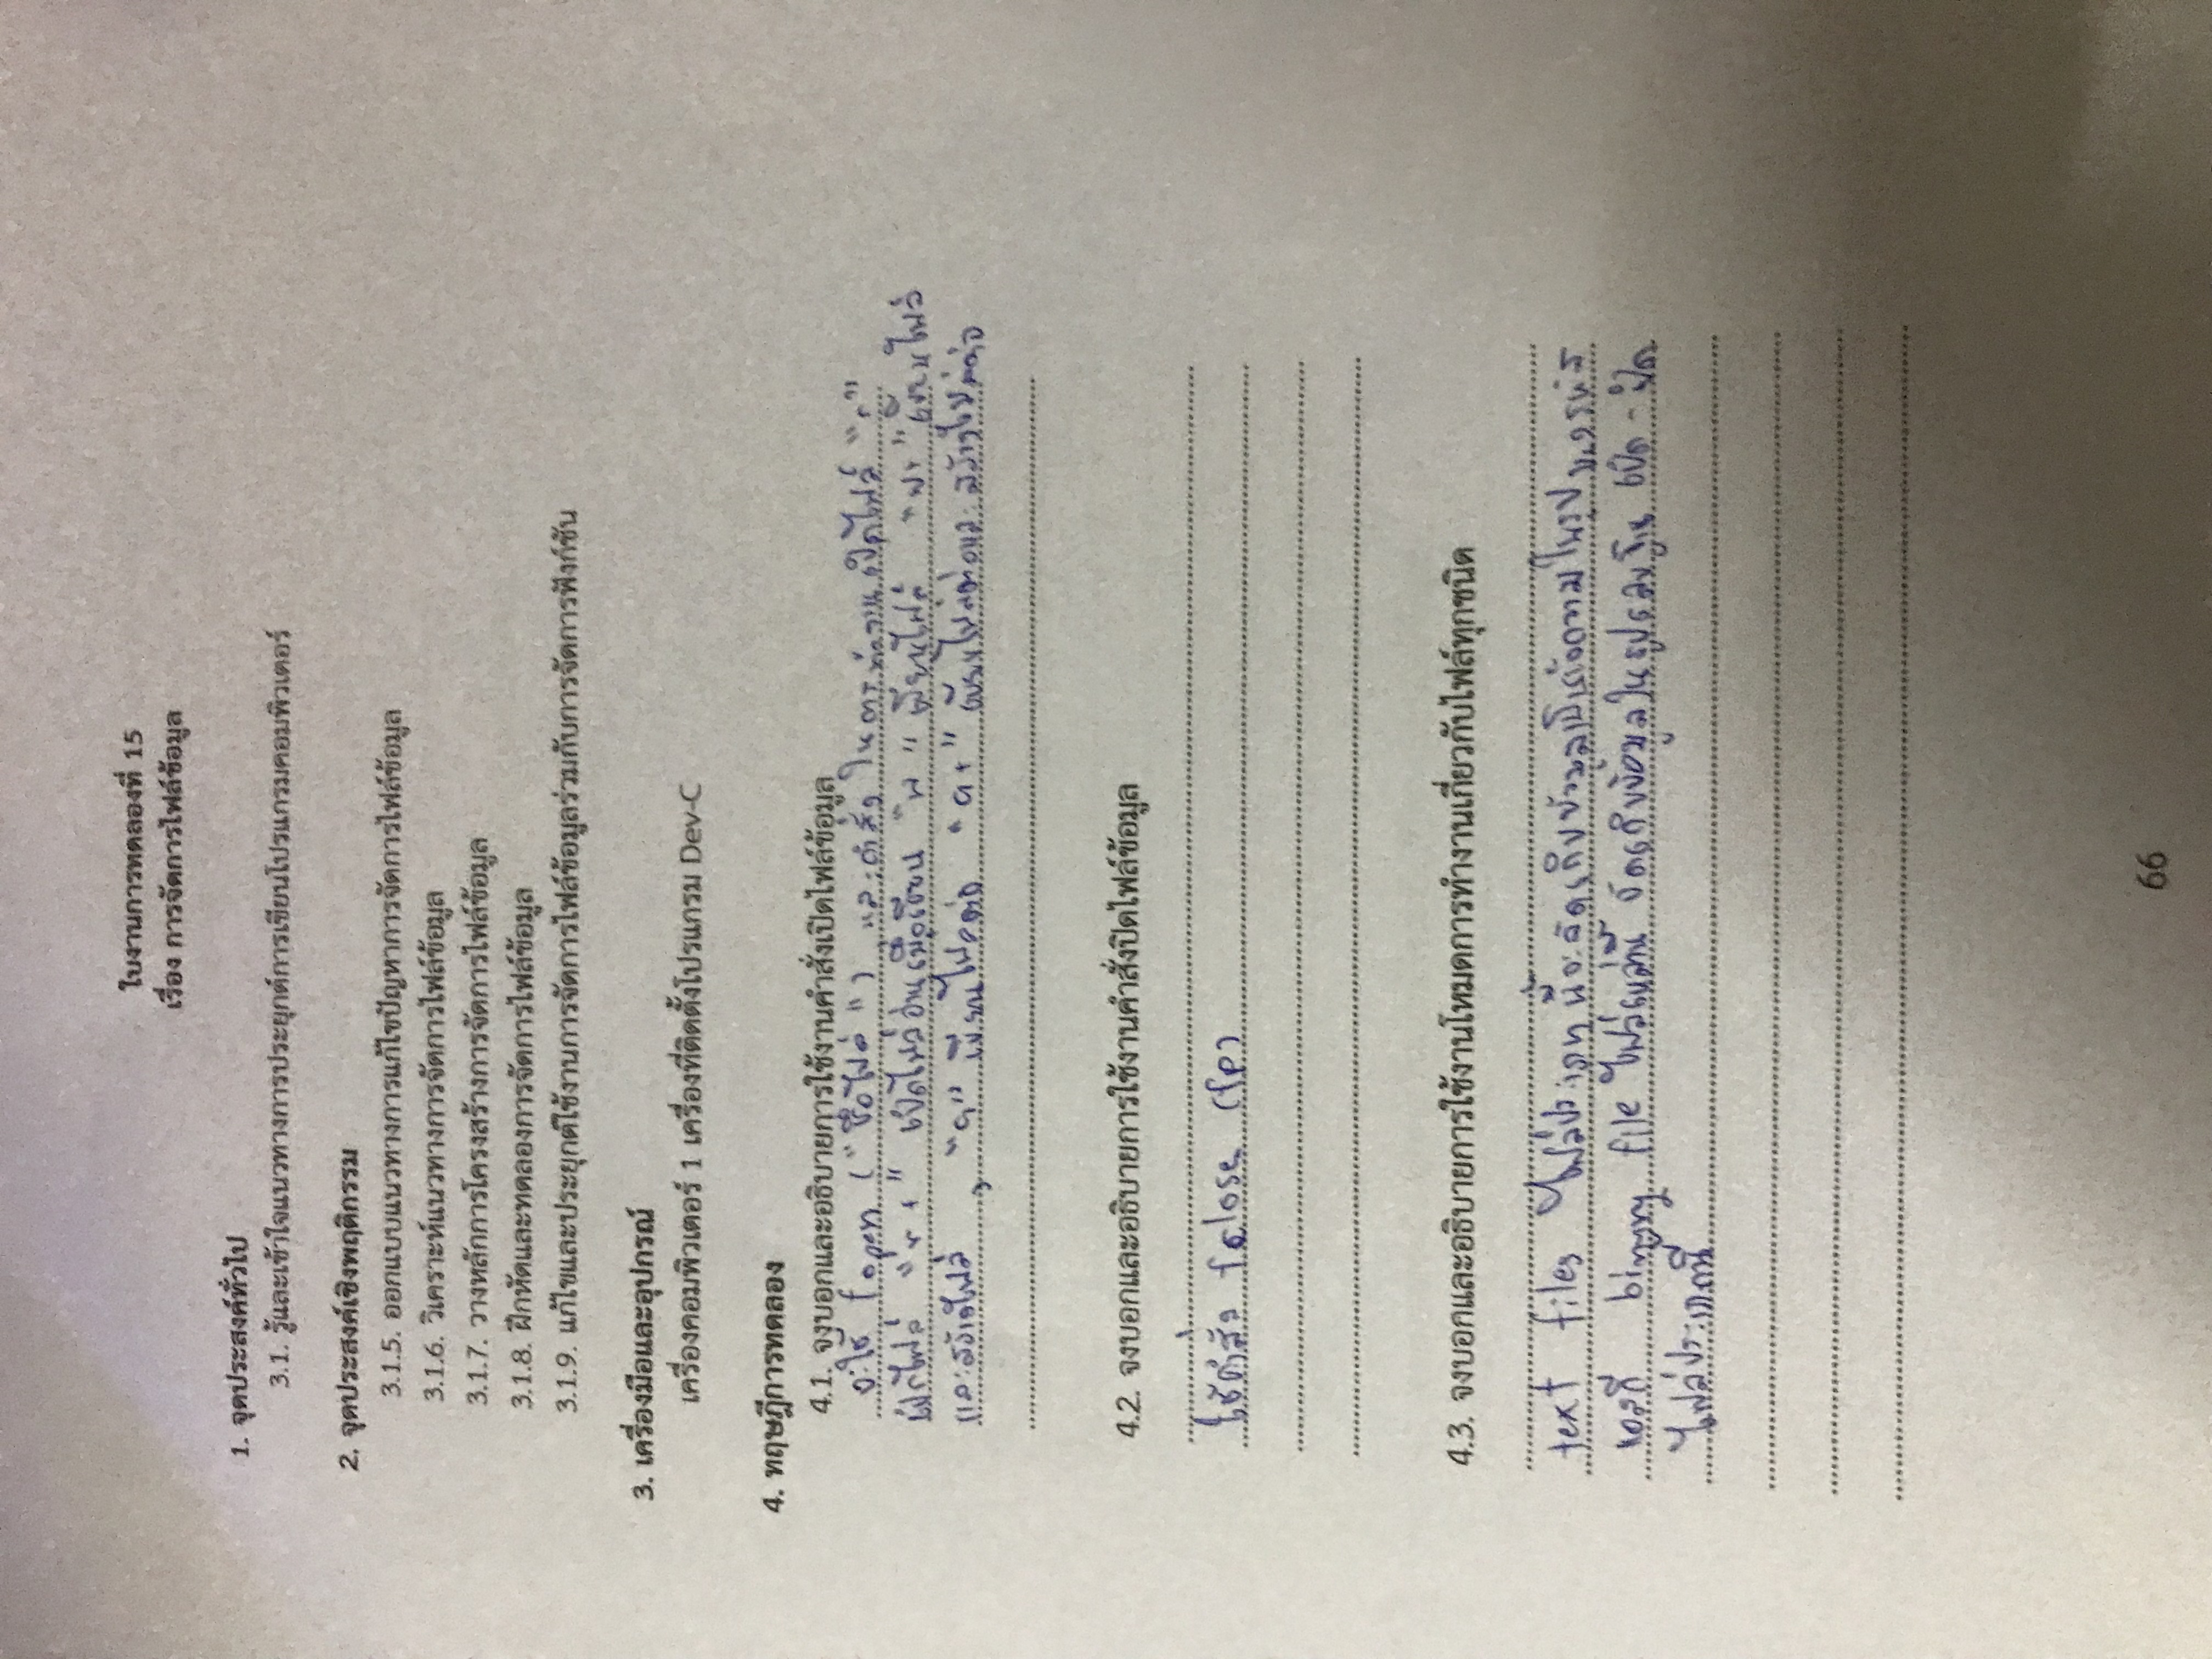 ใบงานการทดลองที่ 15
เรื่อง การจัดการไฟล์ข้อมูล
1. จุดประสงค์ทั่วไป
3.1. รู้และเข้าใจแนวทางการประยุกต์การเขียนโปรแกรมคอมพิวเตอร์
2. จุดประสงค์เชิงพฤติกรรม
3.1.5. ออกแบบแนวทางการแก้ไขปัญหาการจัดการไฟล์ข้อมูล
3.1.6. วิเคราะห์แนวทางการจัดการไฟล์ข้อมูล
3.1.7. วางหลักการโครงสร้างการจัดการไฟล์ข้อมูล
3.1.8. ฝึกหัดและทดลองการจัดการไฟล์ข้อมูล
3.1.9. แก้ไขและประยุกต์ใช้งานการจัดการไฟล์ข้อมูลร่วมกับการจัดการฟังก์ชัน
3. เครื่องมือและอุปกรณ์
เครื่องคอมพิวเตอร์ 1 เครื่องที่ติดตั้งโปรแกรม Dev-C
4. ทฤษฎีการทดลอง
4.1. จงบอกและอธิบายการใช้งานคำสั่งเปิดไฟล์ข้อมูล
จะใช้ fopen ("ชื่อไฟล์") และคำสั่ง ในการทำงานเปิดไฟล์ "r"
เปิดไฟล์ "r+" เปิดไฟล์อ่านเพื่อเขียน "w" เขียนไฟล์ "w+" เขียนไฟล์
และสร้างไฟล์ , "a" เขียนไฟล์ต่อ "a+" เขียนไฟล์ต่อและสร้างไฟล์ต่อ
4.2. จงบอกและอธิบายการใช้งานคำสั่งปิดไฟล์ข้อมูล
ใช้คำสั่ง fclose (fp)
4.3. จงบอกและอธิบายการใช้งานโหมดการทำงานเกี่ยวกับไฟล์ทุกชนิด
text files ไฟล์ประเภทนี้จะจัดเก็บข้อมูลเป็นข้อความในรูปของรหัส
แอสกี binary file ไฟล์เหล่านี้ จัดเก็บข้อมูลในรูปเลขฐาน เปิด - ปิด
ไฟล์ประเภทนี้
66